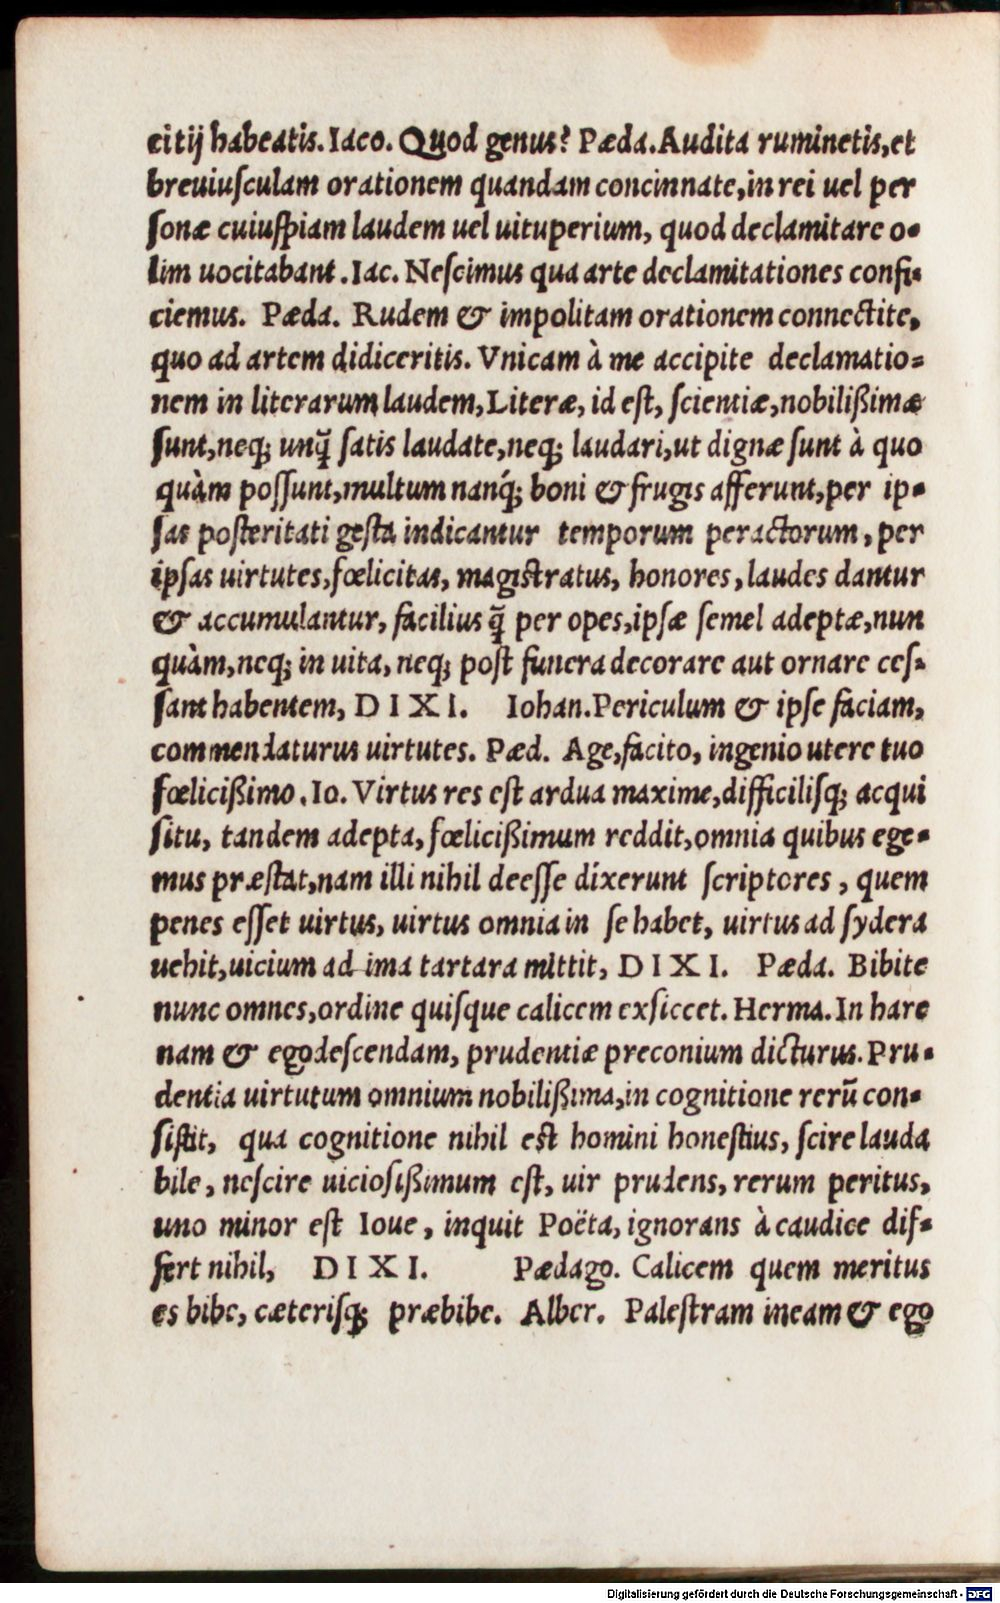 citij habeatis. Iaco. Quod genus? Pæda. Audita ruminetis, et
breuiuſculam orationem quandam concinnate, in rei uel per
ſonæ cuiuſpiam laudem uel uituperium, quod declamitare o-
lim uocitabant. Iac. Neſcimus qua arte declamitationes confi-
ciemus. Pæda. Rudem & impolitam orationem connectite,
quo ad artem didiceritis. Vnicam à me accipite declamatio-
nem in literarum laudem, Literæ, id eſt, ſcientiæ, nobilißimæ
ſunt, neq; unq̃ ſatis laudate, neq; laudari, ut dignæ ſunt à quo
quàm poſſunt, multum nanq́; boni & frugis afferunt, per ip-
ſas poſteritati geſta indicantur temporum peractorum, per
ipſas uirtutes, fœlicitas, magiſtratus, honores, laudes dantur
& accumulantur, facilius q̃ per opes, ipſæ ſemel adeptæ, nun
quàm, neq; in uita, neq; poſt funera decorare aut ornare ceſ-
ſant habentem, DIXI. Iohan. Periculum & ipſe faciam,
commendaturus uirtutes. Pæd. Age, facito, ingenio utere tuo
fœlicißimo. Io. Virtus res eſt ardua maxime, difficiliſq; acqui
ſitu, tandem adepta, fœlicißimum reddit, omnia quibus ege-
mus præſtat, nam illi nihil deeſſe dixerunt ſcriptores, quem
penes eſſet uirtus, uirtus omnia in ſe habet, uirtus ad ſydera
uehit, uicium ad ima tartara mittit, DIXI. Pæda. Bibite
nunc omnes, ordine quiſque calicem exſiccet. Herma. In hare
nam & ego deſcendam, prudentiæ preconium dicturus. Pru-
dentia uirtutum omnium nobilißima, in cognitione rerū con-
ſiſtit, qua cognitione nihil eſt homini honeſtius, ſcire lauda
bile, neſcire uicioſißimum eſt, uir prudens, rerum peritus,
uno minor eſt Ioue, inquit Poëta, ignorans à caudice diſ-
fert nihil, DIXI. Pædago. Calicem quem meritus
es bibe, cæteriſq; præbibe. Alber. Paleſtram ineam & ego
Digitalisierung gefördert durch die Deutsche Forschungsgemeinschaft - DFG